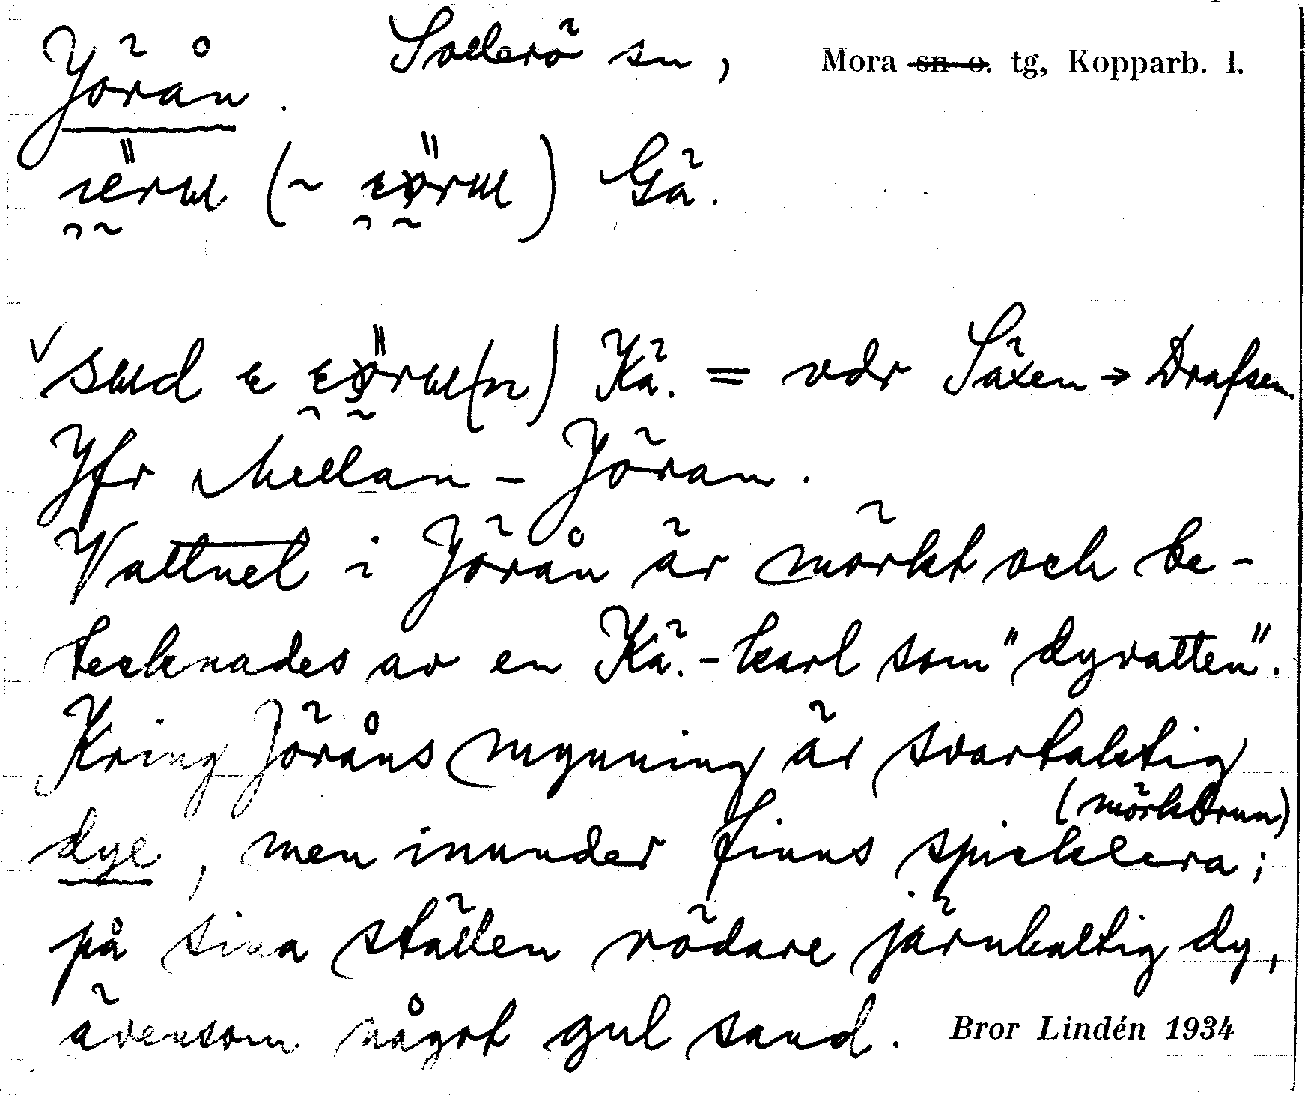 Jörån. Sollerö sn, Mora sn o. tg, Kopparb. l.
Gä.
Kä. = vdr Säxen → Drafsen
Jfr Mellan-Jöran.
Vattnet i Jörån är mörkt och be-
tecknades av en Kä.-karl som "dyvatten".
Kring Jöråns mynning är svartaktig
(mörkbrun)
dye, men inunder finns spicklera;
på sina ställen rödare järnhaltig dy,
ävensom något gul sand. Bror Lindén 1934